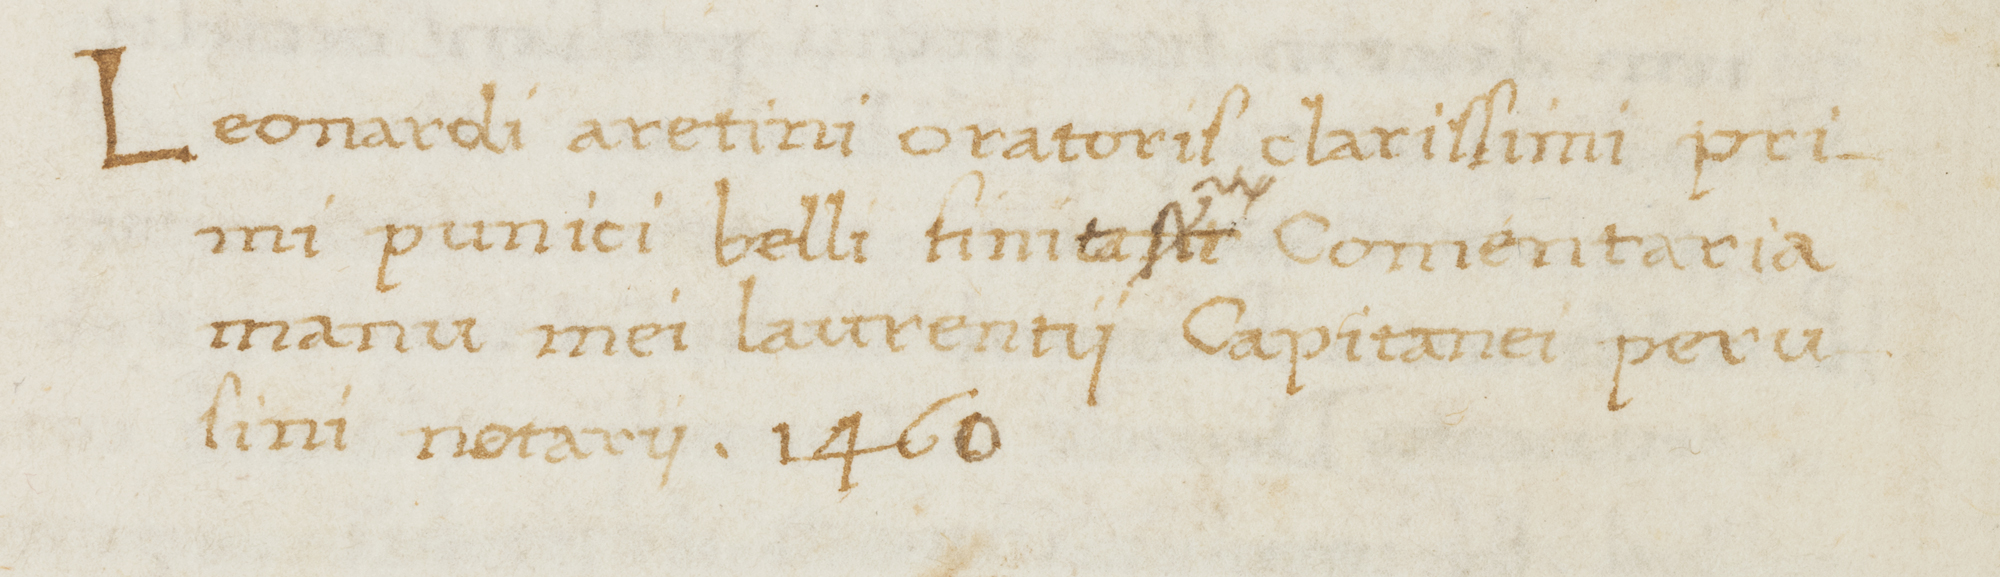 Leonardi aretini oratoris clarissimi pri-
mi punici belli Comentaria
manu mei laurentij Capitanei peru
sini notarij. 1460